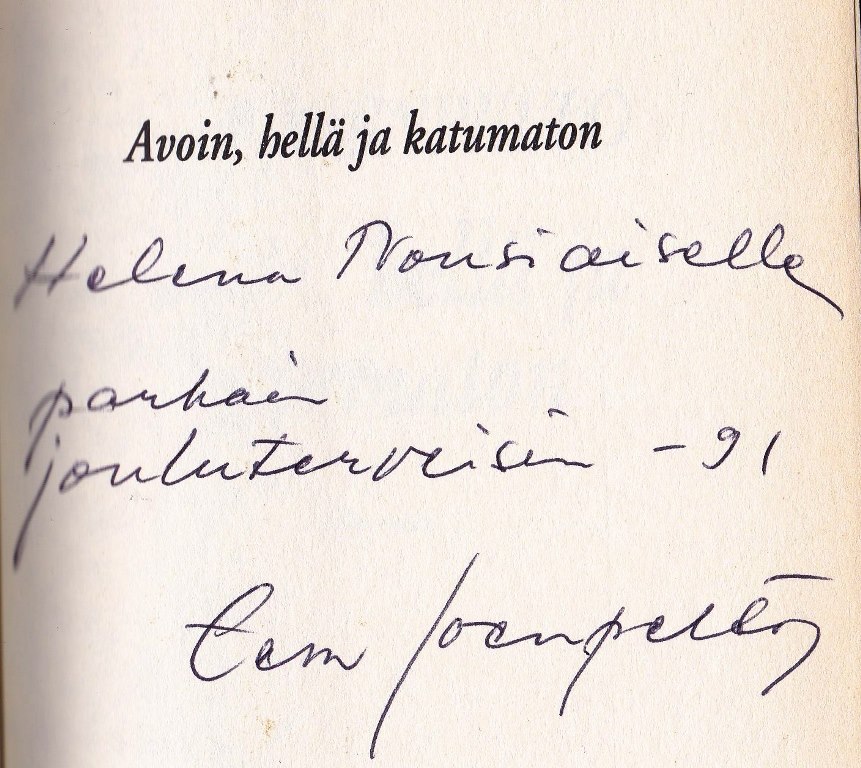 Avoin, hellä ja katumaton
Helena Nousiaiselle
parhain
jouluterveisin -91
Eeva Joenpelto